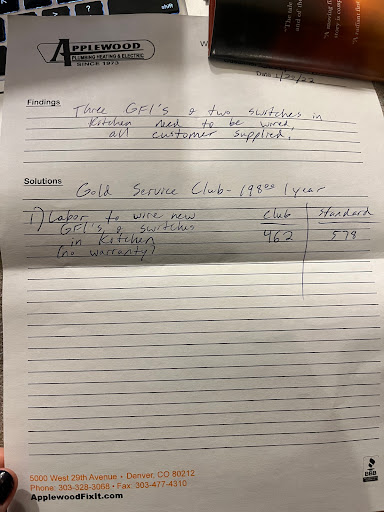 APPLEWOOD
PLUMBING HEATING & ELECTRIC
SINCE 1973
W
Date 1/25/22
Findings
Three GFI's & two switches in
Kitchen need to be wired,
all customer supplied.
Solutions
Gold Service Club - 198.00 / year
1) Labor to wire new
Club
Standard
GFI's & switches
462
578
in Kitchen
(no warranty)
5000 West 29th Avenue • Denver, CO 80212
Phone: 303-328-3068 • Fax: 303-477-4310
ApplewoodFixIt.com
BBB